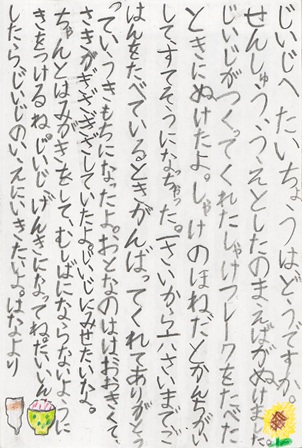 じいじへ たいちょうはどうですか。
せんしゅう、うえとしたのまえばがぬけました
じいじがつくってくれたしゃけフレークをたべた
ときにぬけたよ。しゃけのほねだとかんちがい
してすてそうになっちゃった。一さいから六さいまでご
はんをたべているときがんばってくれてありがとう
っていうきもちになったよ。おとなのははおおきくて
さきがぎざぎざしていたよ。じいじにみせたいな。
ちゃんとはみがきをして、むしばにならないように
きをつけるね。じいじ、げんきになってね。たいいん
したらじいじのいえにいきたいよ。はなより